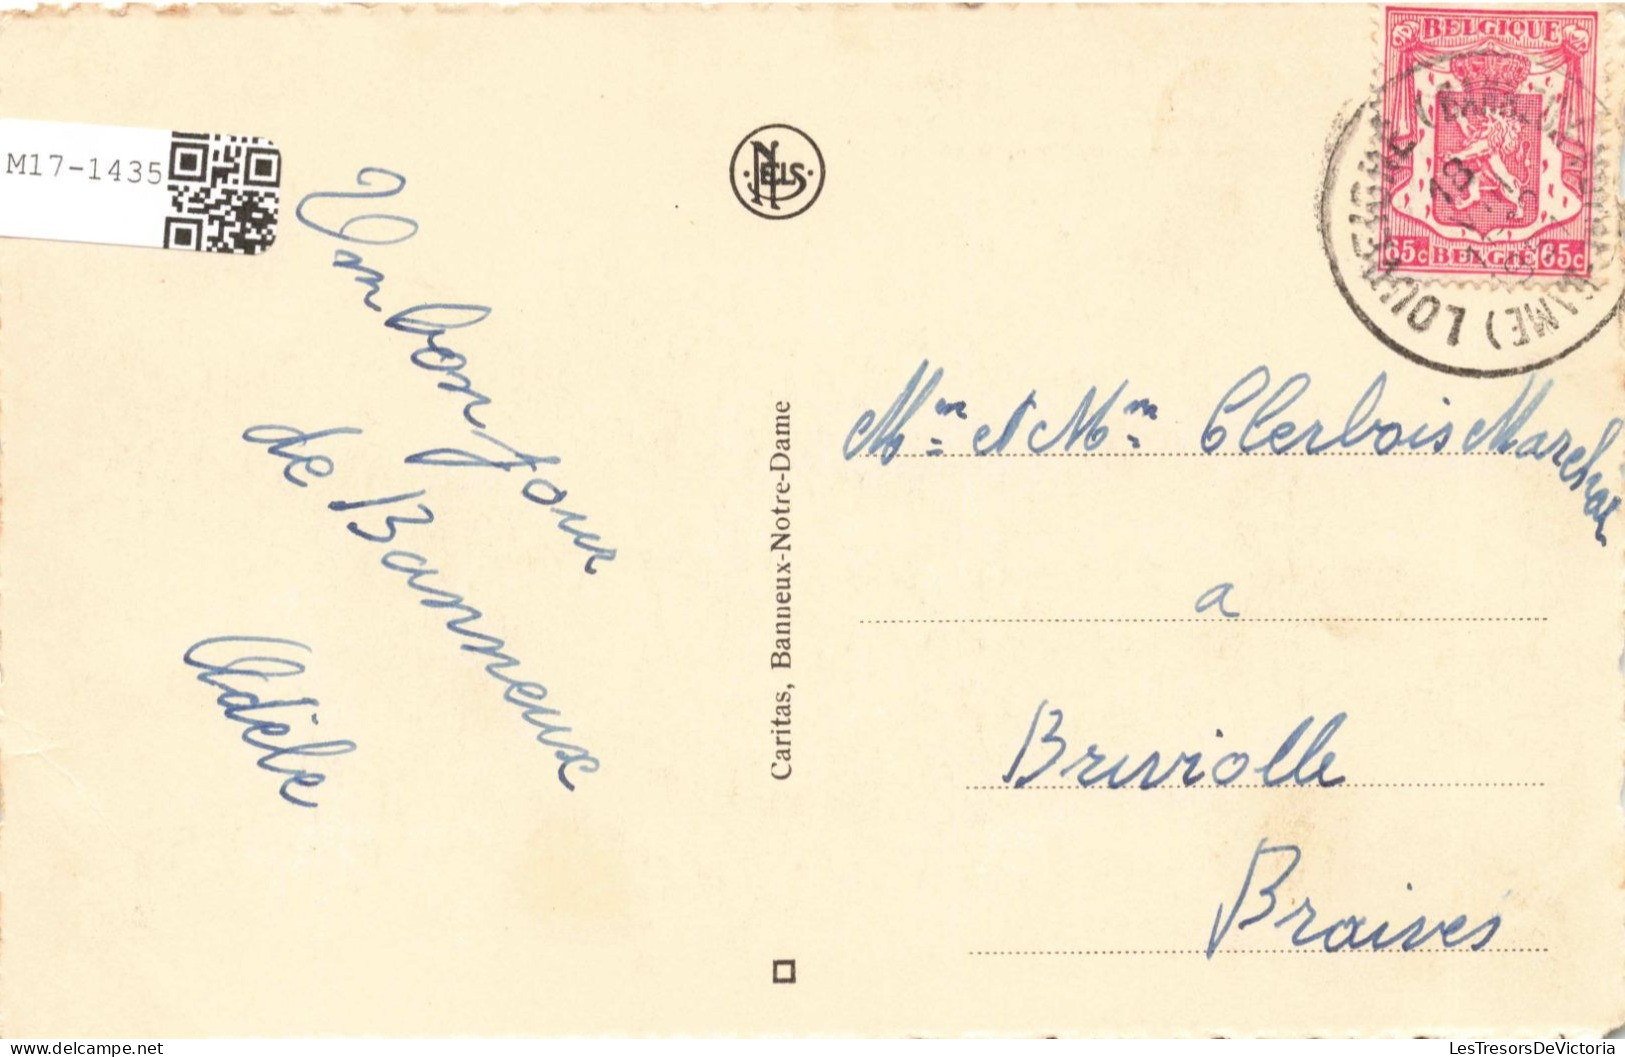 M17-1435
Un bonjour
de Banneux
Adèle
NELS
Caritas, Banneux-Notre-Dame
BELGIQUE
65c BELGIE 65c
LOUVEIGNE (BANNEUX NOTRE-DAME)
Mm et Mm Clerbois Marechal
a
Braives
LesTresorsDeVictoria